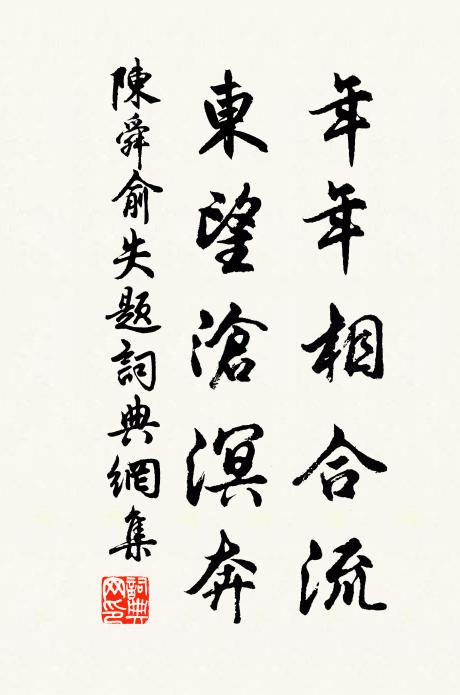 年年相合流
東望滄溟奔
陳舜俞失題詞典網集
詞典网印